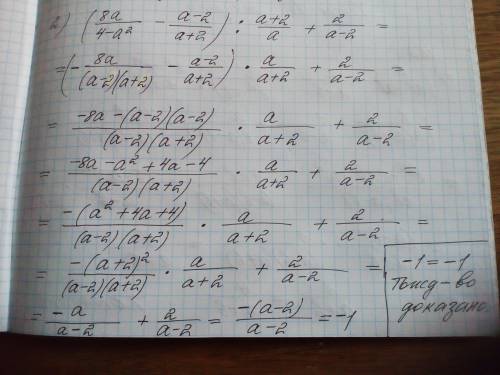 2) (8a/(4-a²) - (a-2)/(a+2)) : (a+2)/a + 2/(a-2) =
= (-8a/((a-2)(a+2)) - (a-2)/(a+2)) · a/(a+2) + 2/(a-2) =
= (-8a-(a-2)(a-2))/((a-2)(a+2)) · a/(a+2) + 2/(a-2) =
= (-8a-a²+4a-4)/((a-2)(a+2)) · a/(a+2) + 2/(a-2) =
= -(a²+4a+4)/((a-2)(a+2)) · a/(a+2) + 2/(a-2) =
= -(a+2)²/((a-2)(a+2)) · a/(a+2) + 2/(a-2) =
= -a/(a-2) + 2/(a-2) = -(a-2)/(a-2) = -1
-1 = -1
Тожд-во
доказано.